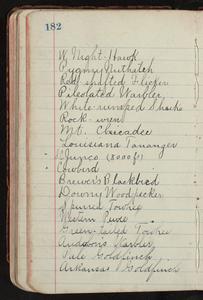 182
W. Night-Hawk
Pygmy Nuthatch
Red-shafted Flicker
Pileolated Warbler
White-rumped Shrike
Rock-wren
Mt. Chicadee
Louisiana Tananger
Junco (8000 ft)
Cowbird
Brewer's Blackbird
Downy Woodpecker
Spurred Towhee
Western Pewee
Green-tailed Towhee
Audubons Warbler
Pale Goldfinch
Arkansas Goldfinch